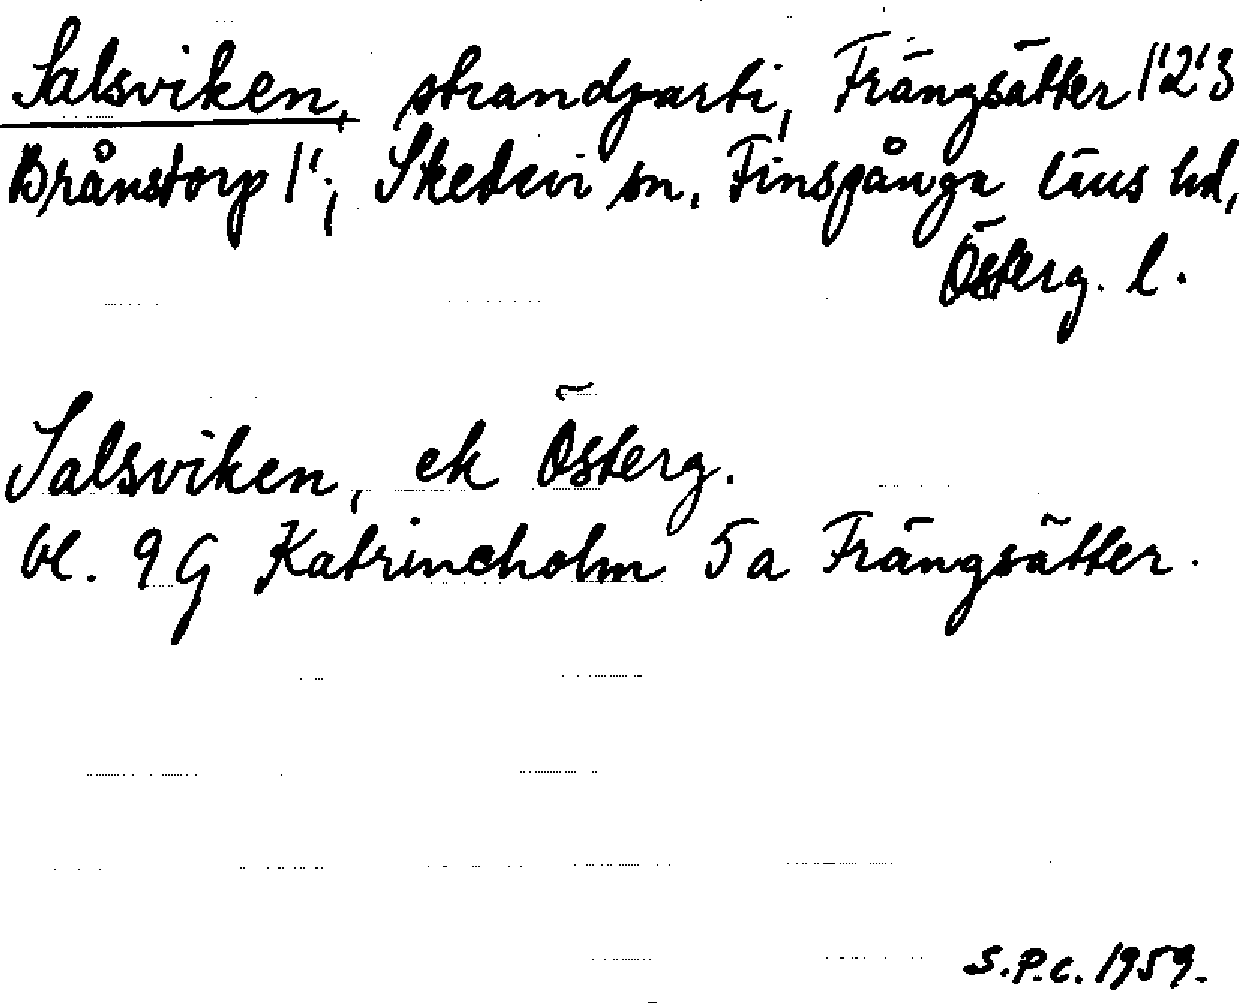 Salsviken, strandparti, Frängsätter 1'2'3
Brånstorp 1'; Skedevi sn, Finspånga läns hd,
Österg. l.
Salsviken, ek Österg.
bl. 9 G Katrineholm 5a Frängsätter.
S.P.C. 1959.